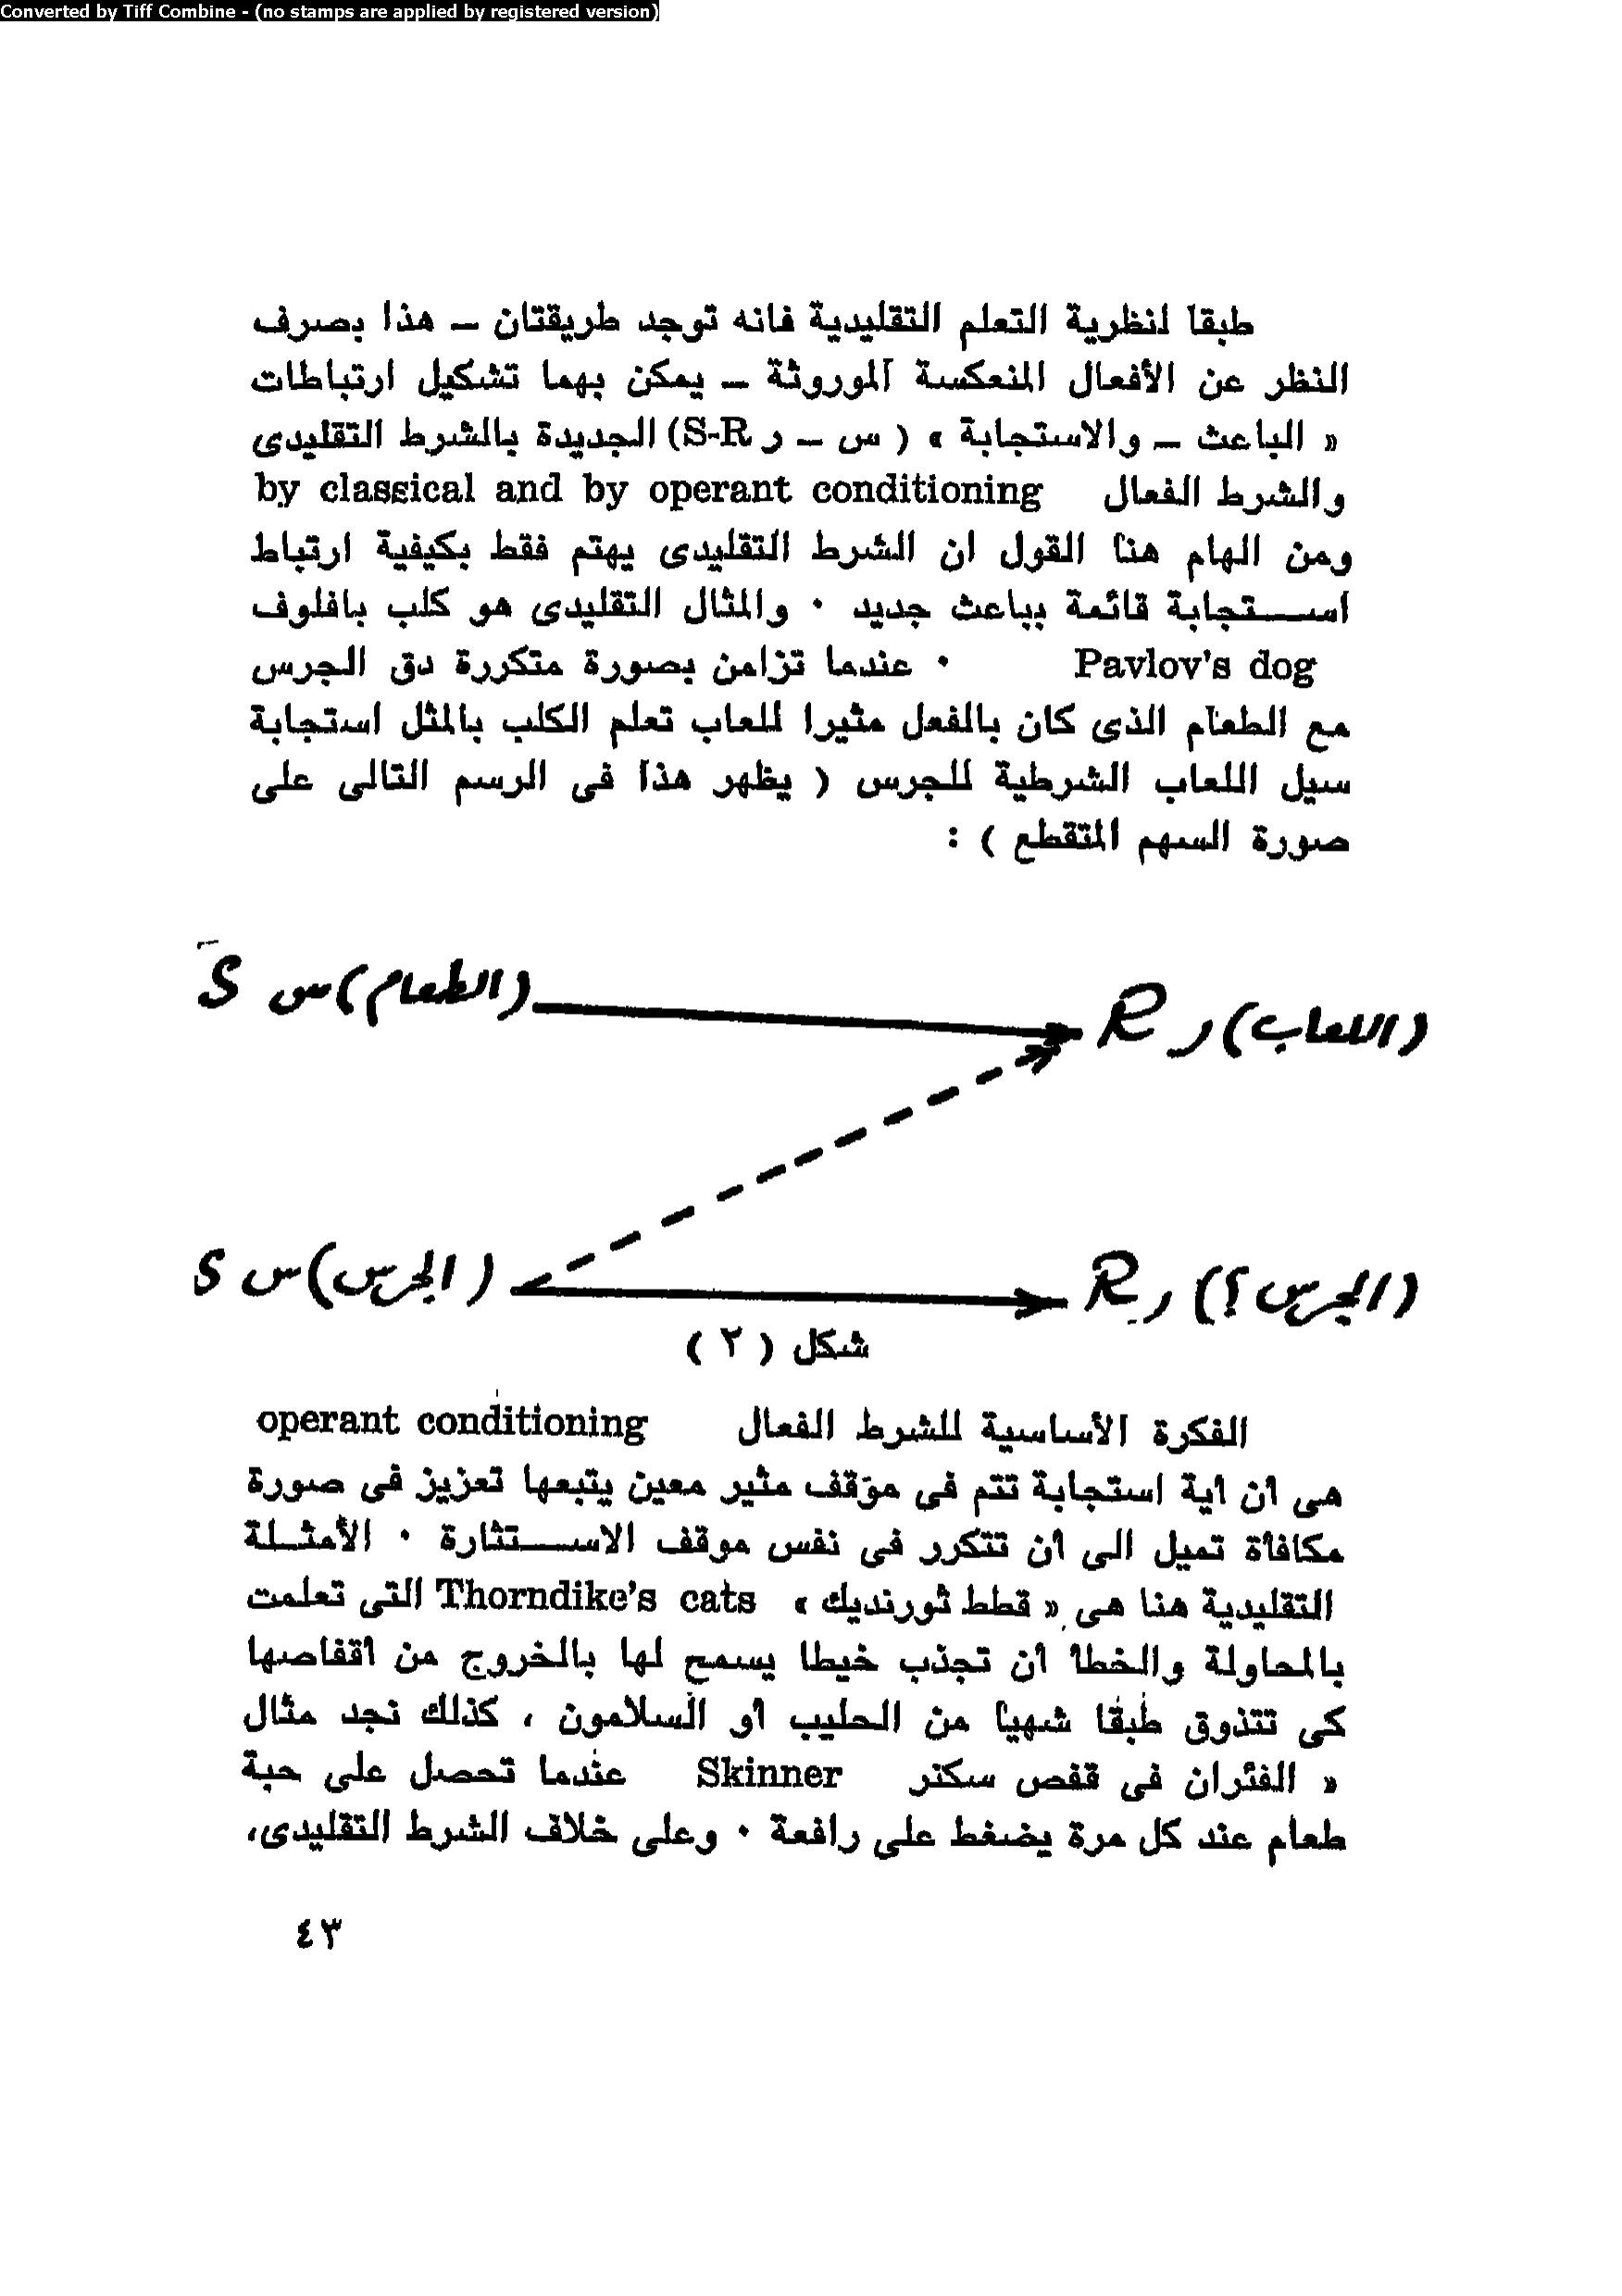 Converted by Tiff Combine - (no stamps are applied by registered version)
طبقا لنظرية التعلم التقليدية فانه توجد طريقتان – هذا بصرف
النظر عن الأفعال المنعكسة الموروثة – يمكن بهما تشكيل ارتباطات
« الباعث – والاستجابة » ( س – ر S-R) الجديدة بالشرط التقليدى
والشرط الفعال by classical and by operant conditioning
ومن الهام هنا القول ان الشرط التقليدى يهتم فقط بكيفية ارتباط
استجابة قائمة بباعث جديد ٠ والمثال التقليدى هو كلب بافلوف
Pavlov's dog ٠ عندما تزامن بصورة متكررة دق الجرس
مع الطعام الذى كان بالفعل مثيرا للعاب تعلم الكلب بالمثل استجابة
سيل اللعاب الشرطية للجرس ( يظهر هذا فى الرسم التالى على
صورة السهم المتقطع ) :
S س (الطعام)
R ر (اللعاب)
S س (الجرس)
R ر (الجرس ؟)
شكل ( ٢ )
الفكرة الأساسية للشرط الفعال operant conditioning
هى أن أية استجابة تتم فى موقف مثير معين يتبعها تعزيز فى صورة
مكافأة تميل الى أن تتكرر فى نفس موقف الاستثارة ٠ الأمثلة
التقليدية هنا هى « قطط ثورنديك » Thorndike's cats التى تعلمت
بالمحاولة والخطأ أن تجذب خيطا يسمح لها بالخروج من أقفاصها
كى تتذوق طبقا شهيا من الحليب أو السلامون ، كذلك نجد مثال
« الفئران فى قفص سكنر Skinner عندما تحصل على حبة
طعام عند كل مرة يضغط على رافعة ٠ وعلى خلاف الشرط التقليدى،
٤٣